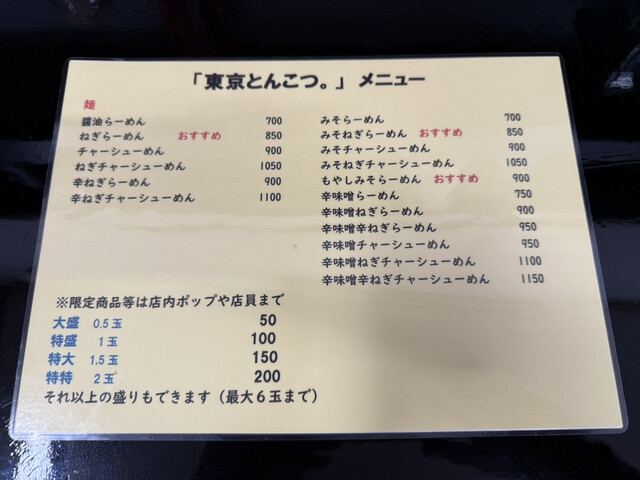 「東京とんこつ。」メニュー
麺
醤油らーめん 700
ねぎらーめん おすすめ 850
チャーシューめん 900
ねぎチャーシューめん 1050
辛ねぎらーめん 900
辛ねぎチャーシューめん 1100
みそらーめん 700
みそねぎらーめん おすすめ 850
みそチャーシューめん 900
みそねぎチャーシューめん 1050
もやしみそらーめん おすすめ 900
辛味噌らーめん 750
辛味噌ねぎらーめん 900
辛味噌辛ねぎらーめん 950
辛味噌チャーシューめん 950
辛味噌ねぎチャーシューめん 1100
辛味噌辛ねぎチャーシューめん 1150
※限定商品等は店内ポップや店員まで
大盛 0.5玉 50
特盛 1玉 100
特大 1,5玉 150
特特 2玉 200
それ以上の盛りもできます（最大６玉まで）